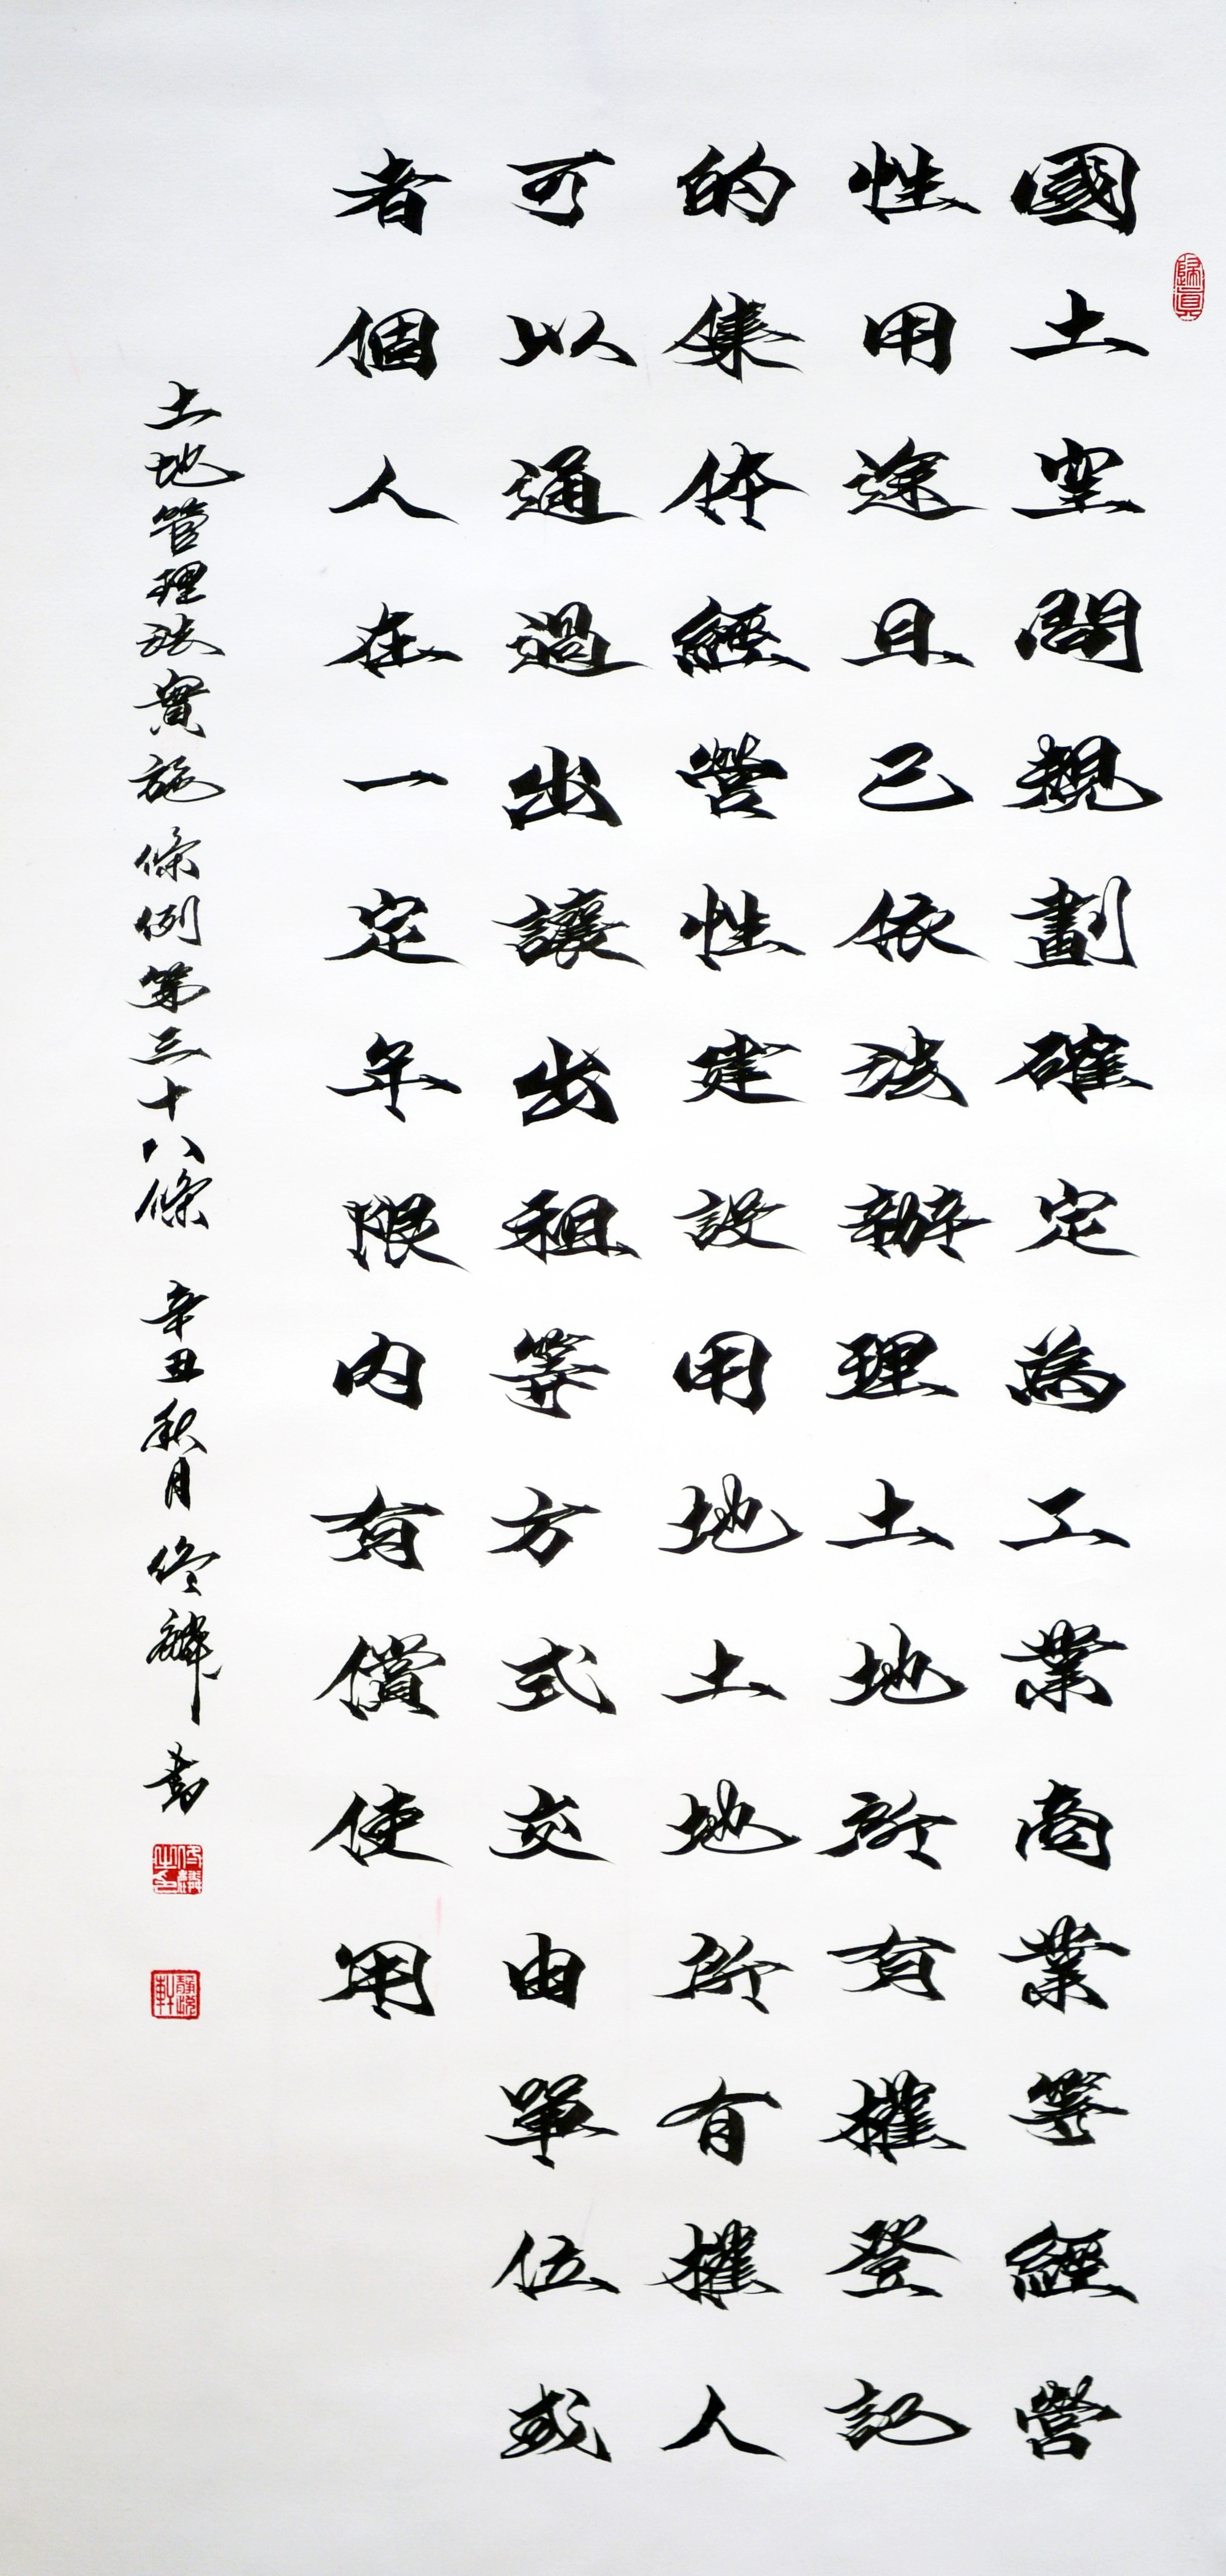 歸真
國土空間規劃確定為工業商業等經營
性用途且已依法辦理土地所有權登記
的集体經營性建設用地土地所有權人
可以通過出讓出租等方式交由單位或
者個人在一定年限内有償使用
土地管理法實施條例第三十八條 辛丑秋月 書